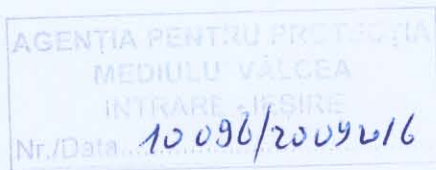 AGENȚIA PENTRU PROTECȚIA
MEDIULUI VÂLCEA
INTRARE - IEȘIRE
Nr./Data 10096/20092016